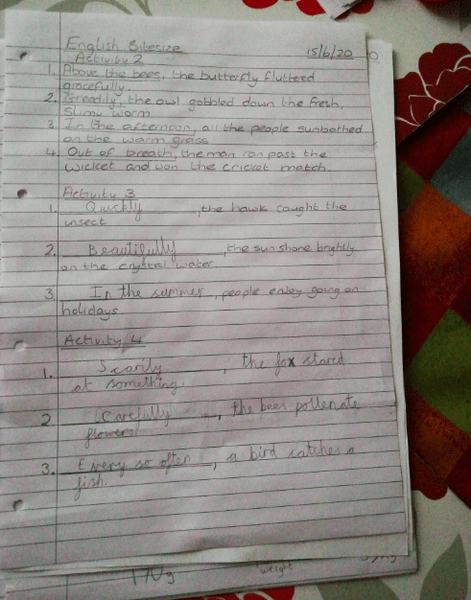 English Bitesize 15/6/20
Activity 2
1. Above the bees, the butterfly fluttered
gracefully.
2. Greedily, the owl gobbled down the fresh,
slimy worm
3. In the afternoon, all the people sunbathed
on the warm grass
4. Out of breath, the man ran past the
wicket and won the cricket match.
Activity 3
1. Quickly, the hawk caught the
insect
2. Beautifully, the sun shone brightly
on the crystal water
3. In the summer, people enjoy going on
holidays
Activity 4
1. Scarily, the fox stared
at something.
2. Carefully, the bees pollenate
flowers
3. Every so often, a bird catches a
fish.
170g
weight